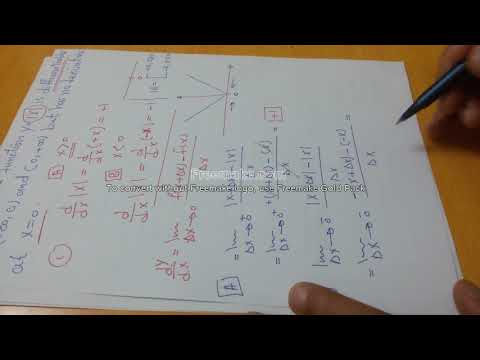 function y=|x| is differentiable
(-∞,0) and (0,+∞) but has no derivative
at x=0.
x>0
d/dx |x| = d/dx (x) = +1
B x<0
d/dx |x| = d/dx (-x) = -1
dy/dx = lim Δx→0 f(x+Δx)-f(x) / Δx
A = lim Δx→0⁺ |x+Δx|-|x| / Δx
= lim Δx→0⁺ +(x+Δx)-(x) / Δx = +1
lim Δx→0⁻ |x+Δx|-|x| / Δx
= lim Δx→0⁻ -(x+Δx)-(-x) / Δx =
To convert without Freemake logo, use Freemake Gold Pack